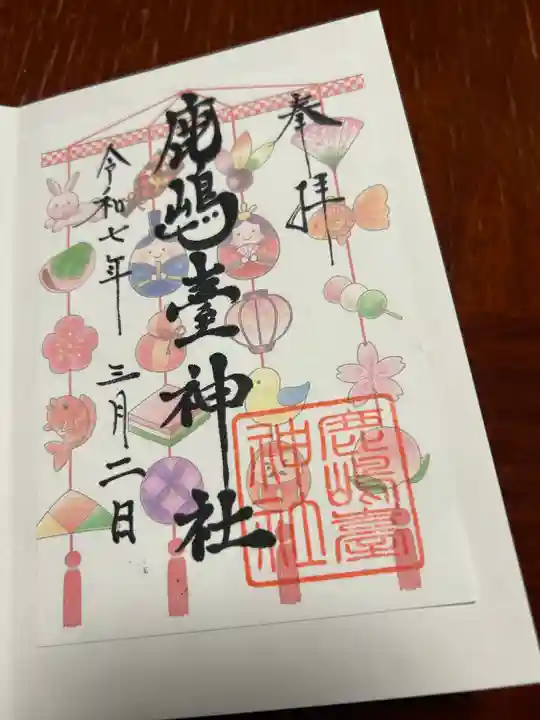 奉拝
鹿嶋臺神社
令和七年三月二日
鹿嶋臺
神社